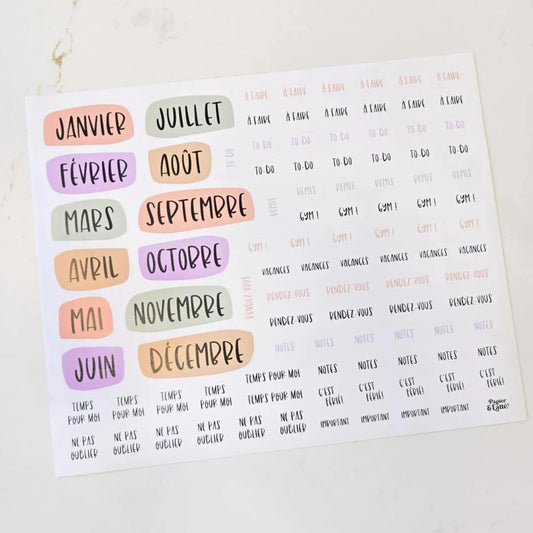 JANVIER
JUILLET
FÉVRIER
AOÛT
MARS
SEPTEMBRE
AVRIL
OCTOBRE
MAI
NOVEMBRE
JUIN
DÉCEMBRE
À FAIRE À FAIRE À FAIRE À FAIRE À FAIRE À FAIRE
À FAIRE À FAIRE À FAIRE À FAIRE À FAIRE À FAIRE
TO-DO
TO-DO TO-DO TO-DO TO-DO TO-DO TO-DO
TO-DO TO-DO TO-DO TO-DO TO-DO TO-DO
REMIS
REMIS REMIS REMIS REMIS REMIS
GYM ! GYM ! GYM ! GYM ! GYM !
GYM ! GYM ! GYM ! GYM ! GYM ! GYM !
VACANCES VACANCES VACANCES VACANCES VACANCES VACANCES
RENDEZ-VOUS
RENDEZ-VOUS RENDEZ-VOUS RENDEZ-VOUS RENDEZ-VOUS
RENDEZ-VOUS RENDEZ-VOUS RENDEZ-VOUS RENDEZ-VOUS
NOTES NOTES NOTES NOTES NOTES NOTES
TEMPS POUR MOI NOTES NOTES NOTES NOTES NOTES
TEMPS TEMPS TEMPS TEMPS
POUR MOI POUR MOI POUR MOI POUR MOI
TEMPS POUR MOI
C'EST C'EST C'EST C'EST C'EST
FÉRIÉ! FÉRIÉ! FÉRIÉ! FÉRIÉ! FÉRIÉ!
NE PAS NE PAS NE PAS NE PAS NE PAS NE PAS
OUBLIER OUBLIER OUBLIER OUBLIER OUBLIER OUBLIER
IMPORTANT IMPORTANT IMPORTANT IMPORTANT
Papier
& Latte!